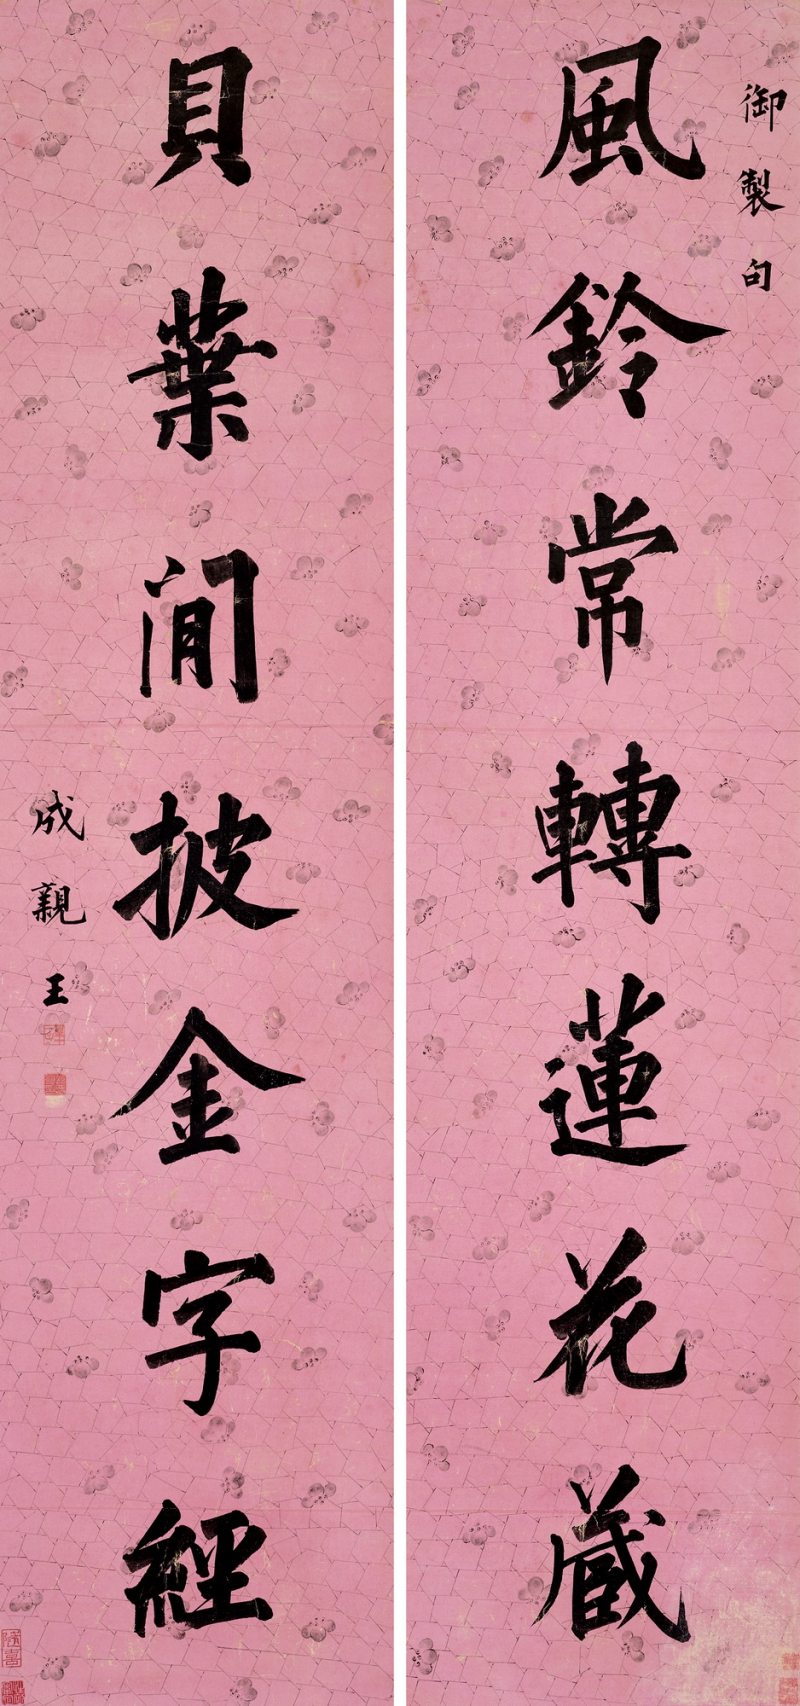 御製句
風鈴常轉蓮花藏
貝葉閒披金字經
成親王